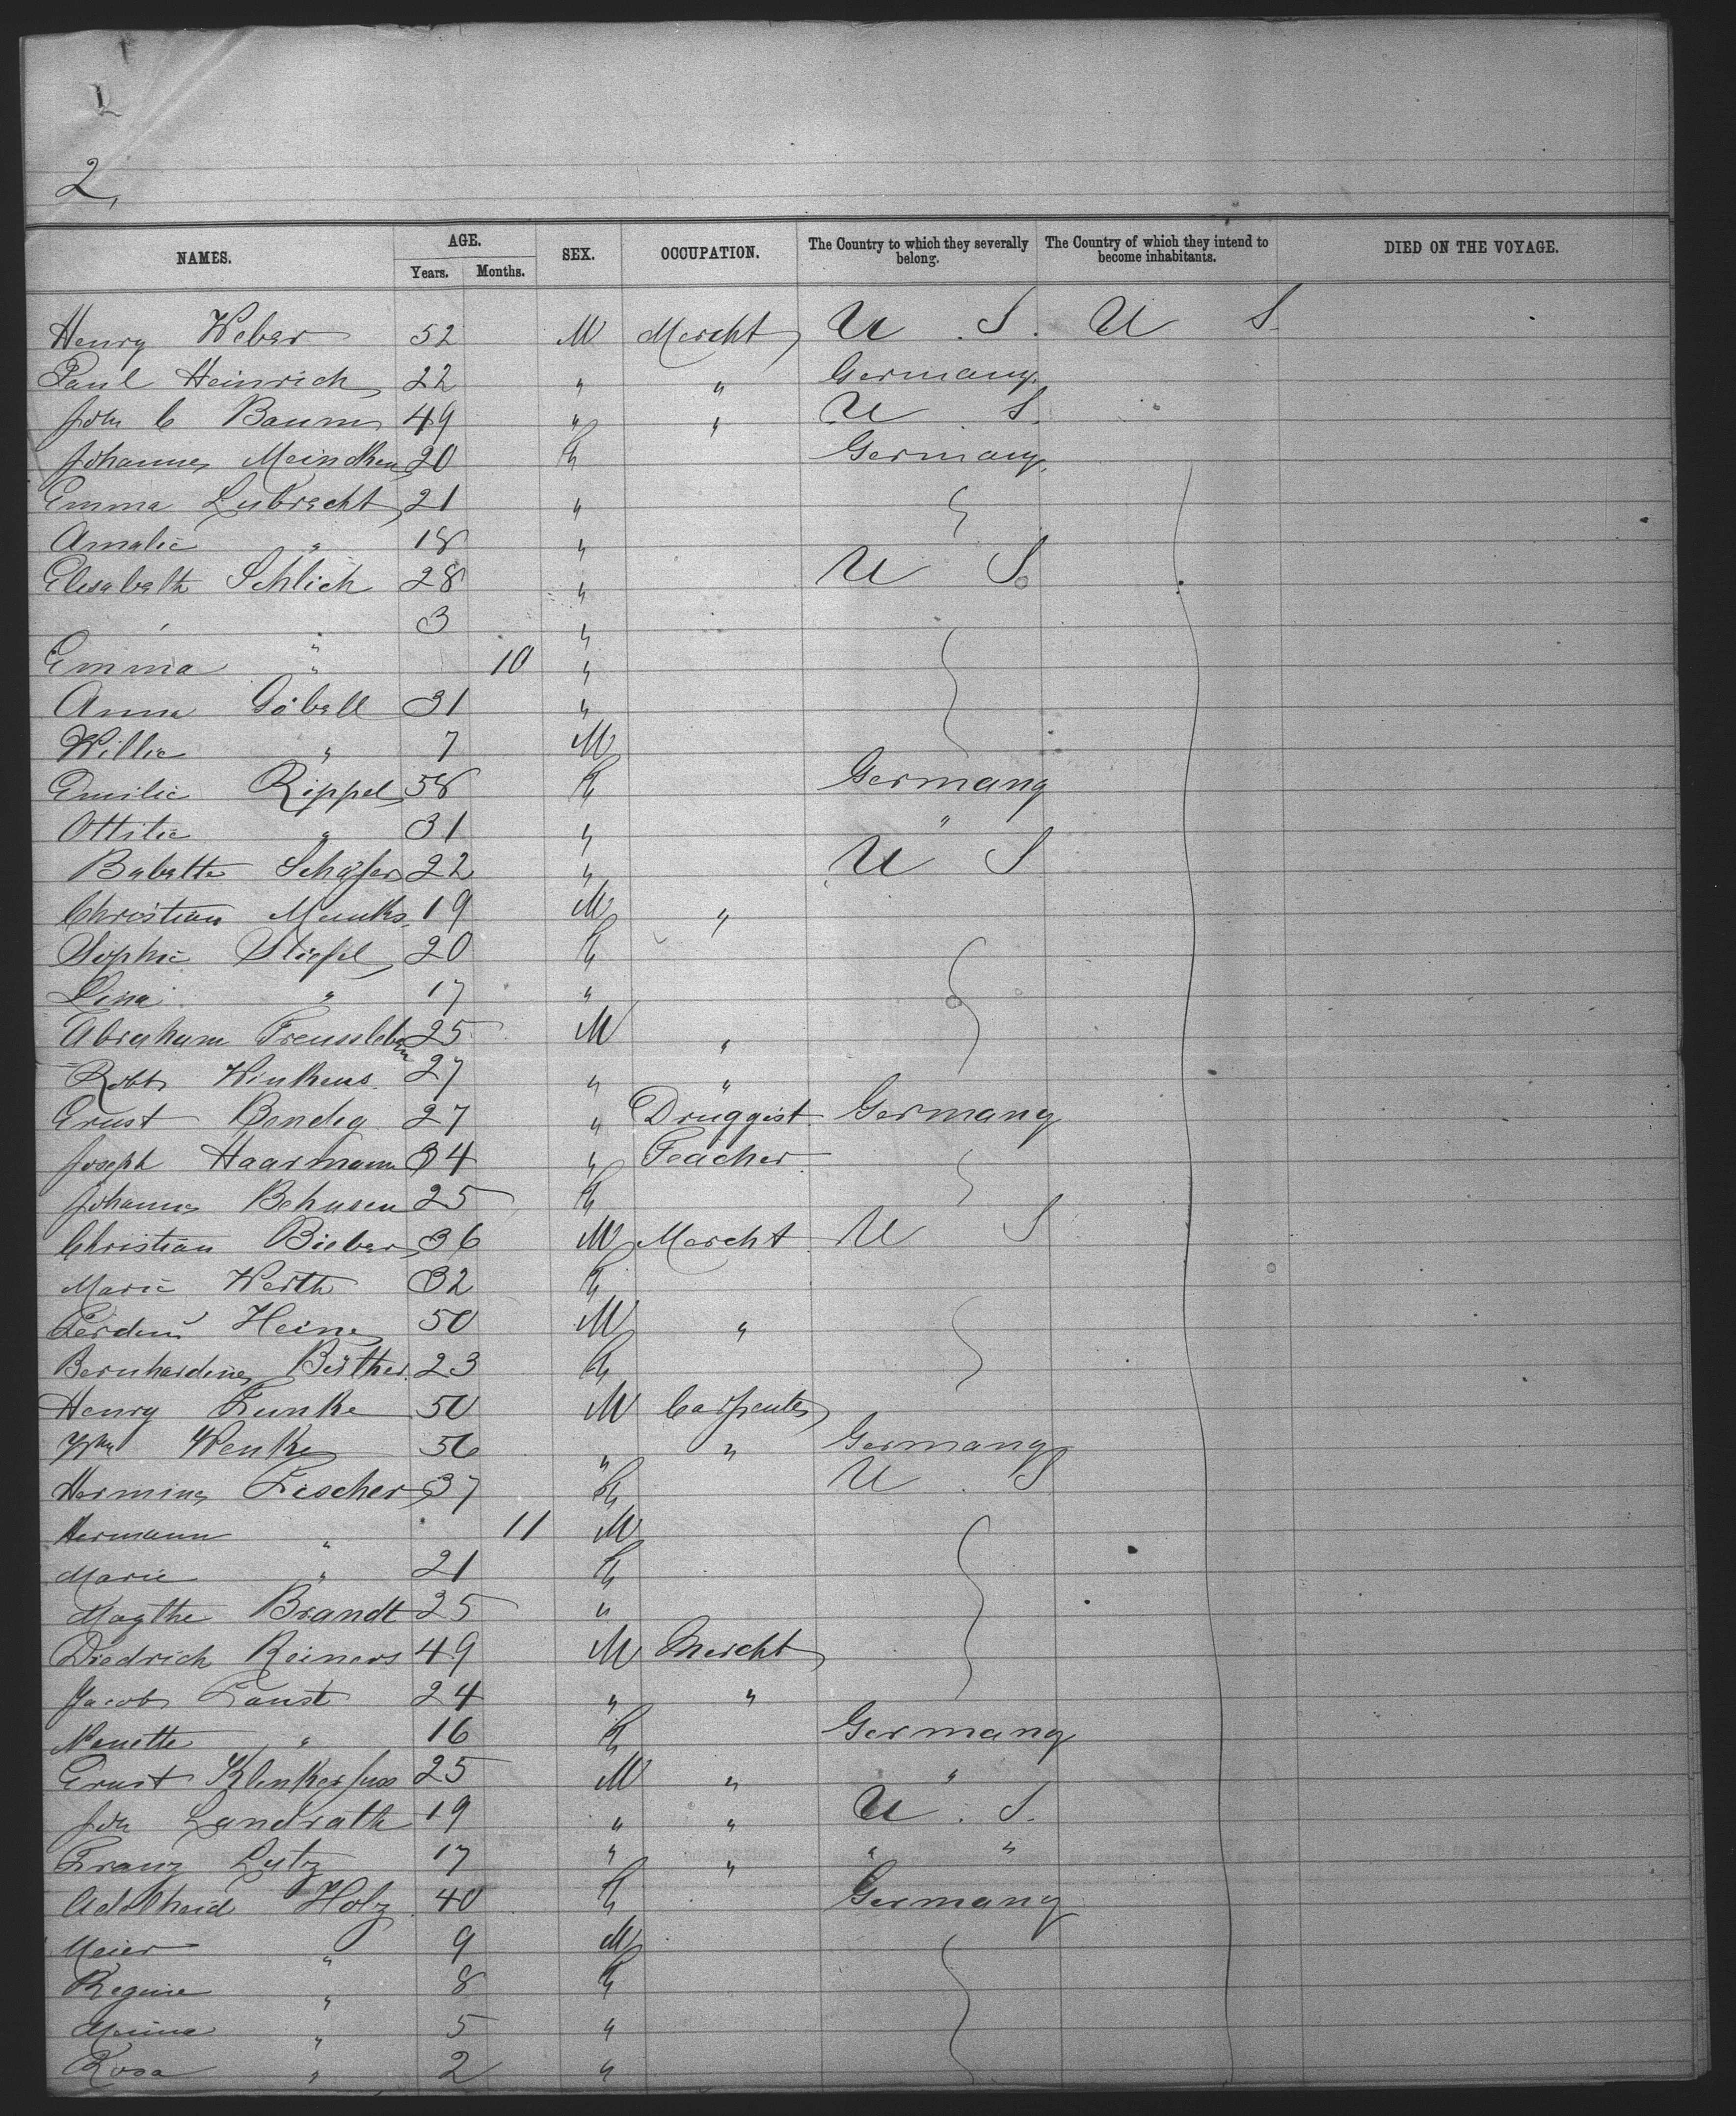 1
2,
NAMES. AGE. Years. Months. SEX. OCCUPATION. The Country to which they severally belong. The Country of which they intend to become inhabitants. DIED ON THE VOYAGE.
Henry Weber 52 M Mercht U. S. U S.
Paul Heinrich 22 " " Germany.
John C Baum 49 " " U S.
Johanne Meincken 20 F Germany.
Emma Lubrecht 21 "
Amalie " 18 "
Elisabeth Schlich 28 " U S.
" " 3 "
Emma " 10 "
Anna Göbell 31 "
Willie " 7 M
Emilie Rippel 58 F Germany
Ottilie " 31 " "
Babette Schäfer 22 " U S
Christian Munks 19 M "
Sophie Stiefel 20 F
Lina " 17 "
Abraham 25 M "
Robt Winkens 27 " "
Ernst Bendig 27 " Druggist Germany
Joseph Haarmann 34 " Teacher
Johanne Behusen 25 F
Christian Bieber 36 M Mercht U S
Marie Werth 32 F
Ferdin Heine 50 M "
Bernhardine Büther 23 F
Henry Funke 50 M Carpenter
Wm Wenke 56 " " Germany
Hermine Fischer 37 F U. S
Hermann " 11 M
Marie " 21 F
Magthe Brandt 25 "
Diedrich Reiners 49 M Mercht
Jacob Faust 24 " "
Nanette " 16 F Germany
Ernst Klinkerfuss 25 M " "
John Landrath 19 " " U. S.
Franz Lutz 17 " " " "
Adelheid Holz 40 F Germany
Meier " 9 M
Regine " 8 F
Minna " 5 "
Rosa " 2 "